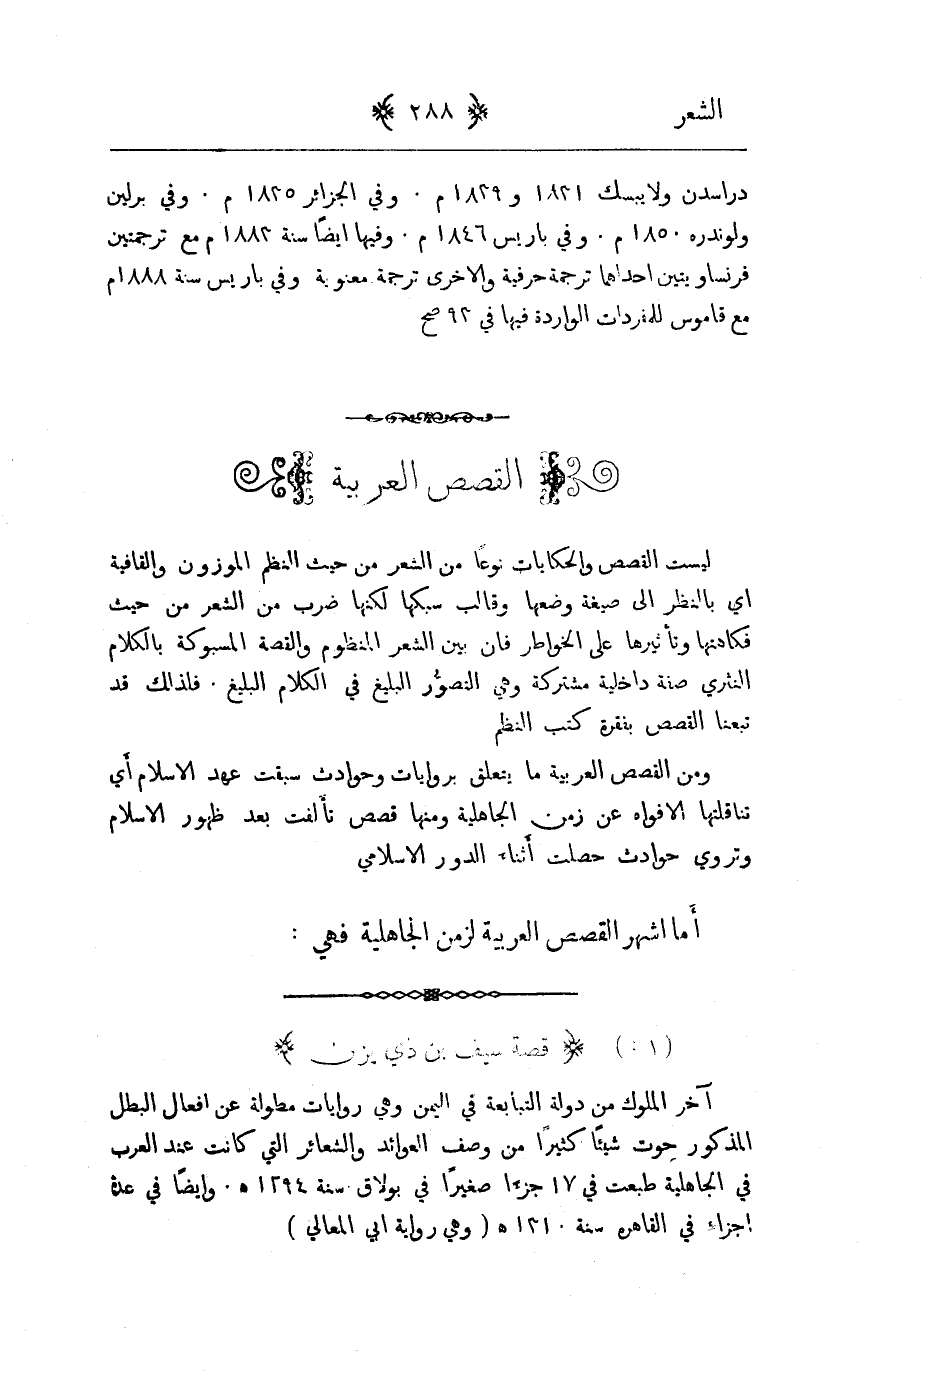 الشعر ﴿ ٢٨٨ ﴾
دراسدن ولايبسك ١٨٢١ و ١٨٢٩ م ٠ وفي الجزائر ١٨٢٥ م ٠ وفي برلين
ولوندره ١٨٥٠ م ٠ وفي باريس ١٨٤٦ م ٠ وفيها ايضًا سنة ١٨٨٢ م مع ترجمتين
فرنساويتين احداهما ترجمة حرفية والاخرى ترجمة معنوية وفي باريس سنة ١٨٨٨م
مع قاموس للمفردات الواردة فيها في ٩٢ صح
القصص العربية
ليست القصص والحكايات نوعًا من الشعر من حيث النظم الموزون والقافية
اي بالنظر الى صيغة وضعها وقالب سبكها لكنها ضرب من الشعر من حيث
فكاهتها وتأثيرها على الخواطر فان بين الشعر المنظوم والقصة المسبوكة بالكلام
النثري صفة داخلية مشتركة وهي التصوُّر البليغ في الكلام البليغ ٠ فلذلك قد
تبعنا القصص بفقرة كتب النظم
ومن القصص العربية ما يتعلق بروايات وحوادث سبقت عهد الاسلام أي
تناقلتها الافواه عن زمن الجاهلية ومنها قصص تألفت بعد ظهور الاسلام
وتروي حوادث حصلت أثناء الدور الاسلامي
أما اشهر القصص العربية لزمن الجاهلية فهي :
(١:) ﴿ قصة سيف بن ذي يزن ﴾
آخر الملوك من دولة التبابعة في اليمن وهي روايات مطولة عن افعال البطل
المذكور حوت شيئًا كثيرًا من وصف العوائد والشعائر التي كانت عند العرب
في الجاهلية طبعت في ١٧ جزءًا صغيرًا في بولاق سنة ١٢٩٤ ه ٠ وايضًا في عدة
اجزاء في القاهرة سنة ١٣١٠ ه ( وهي رواية ابي المعالي )